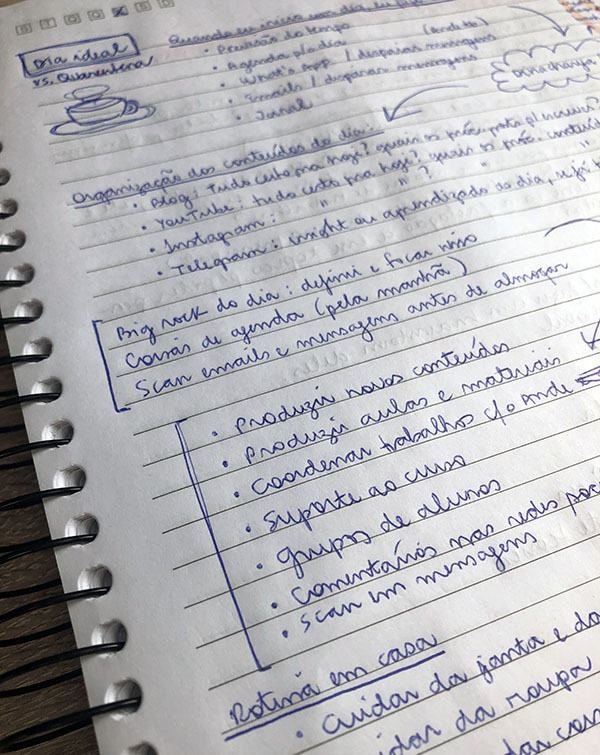 S T Q Q X S D
Dia ideal
vs. Quarentena
Quando eu inicio meu dia eu
• Previsão do tempo
• Agenda p/o dia
• What's App / disparar mensagens
• Emails / disparar mensagens
• Jornal
Organização dos conteúdos do dia:
• Blog: tudo certo pra hoje? quais os próx. posts p/ escrever?
• YouTube: tudo certo pra hoje? quais os próx. conteúdos
• Instagram: " " ? " "
• Telegram: insight ou aprendizado do dia, se já
Big rock do dia: definir e focar nisso
Coisas de agenda (pela manhã)
Scan emails e mensagens antes de almoçar
• Produzir novos conteúdos
• Produzir aulas e materiais
• Coordenar trabalhos c/o Ande
• Suporte ao curso
• grupos de alunos
• comentários nas redes
• scan em mensagens
Rotina em casa
• cuidar da janta e da
cuidar da roupa